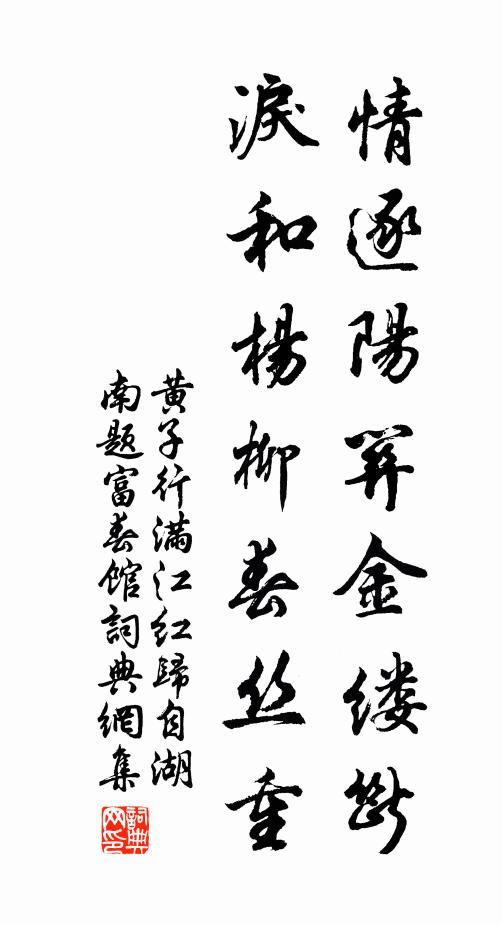 情逐陽關金縷斷
淚和楊柳春丝重
黃子行滿江紅歸自湖
南題富春館詞典網集
詞典网印